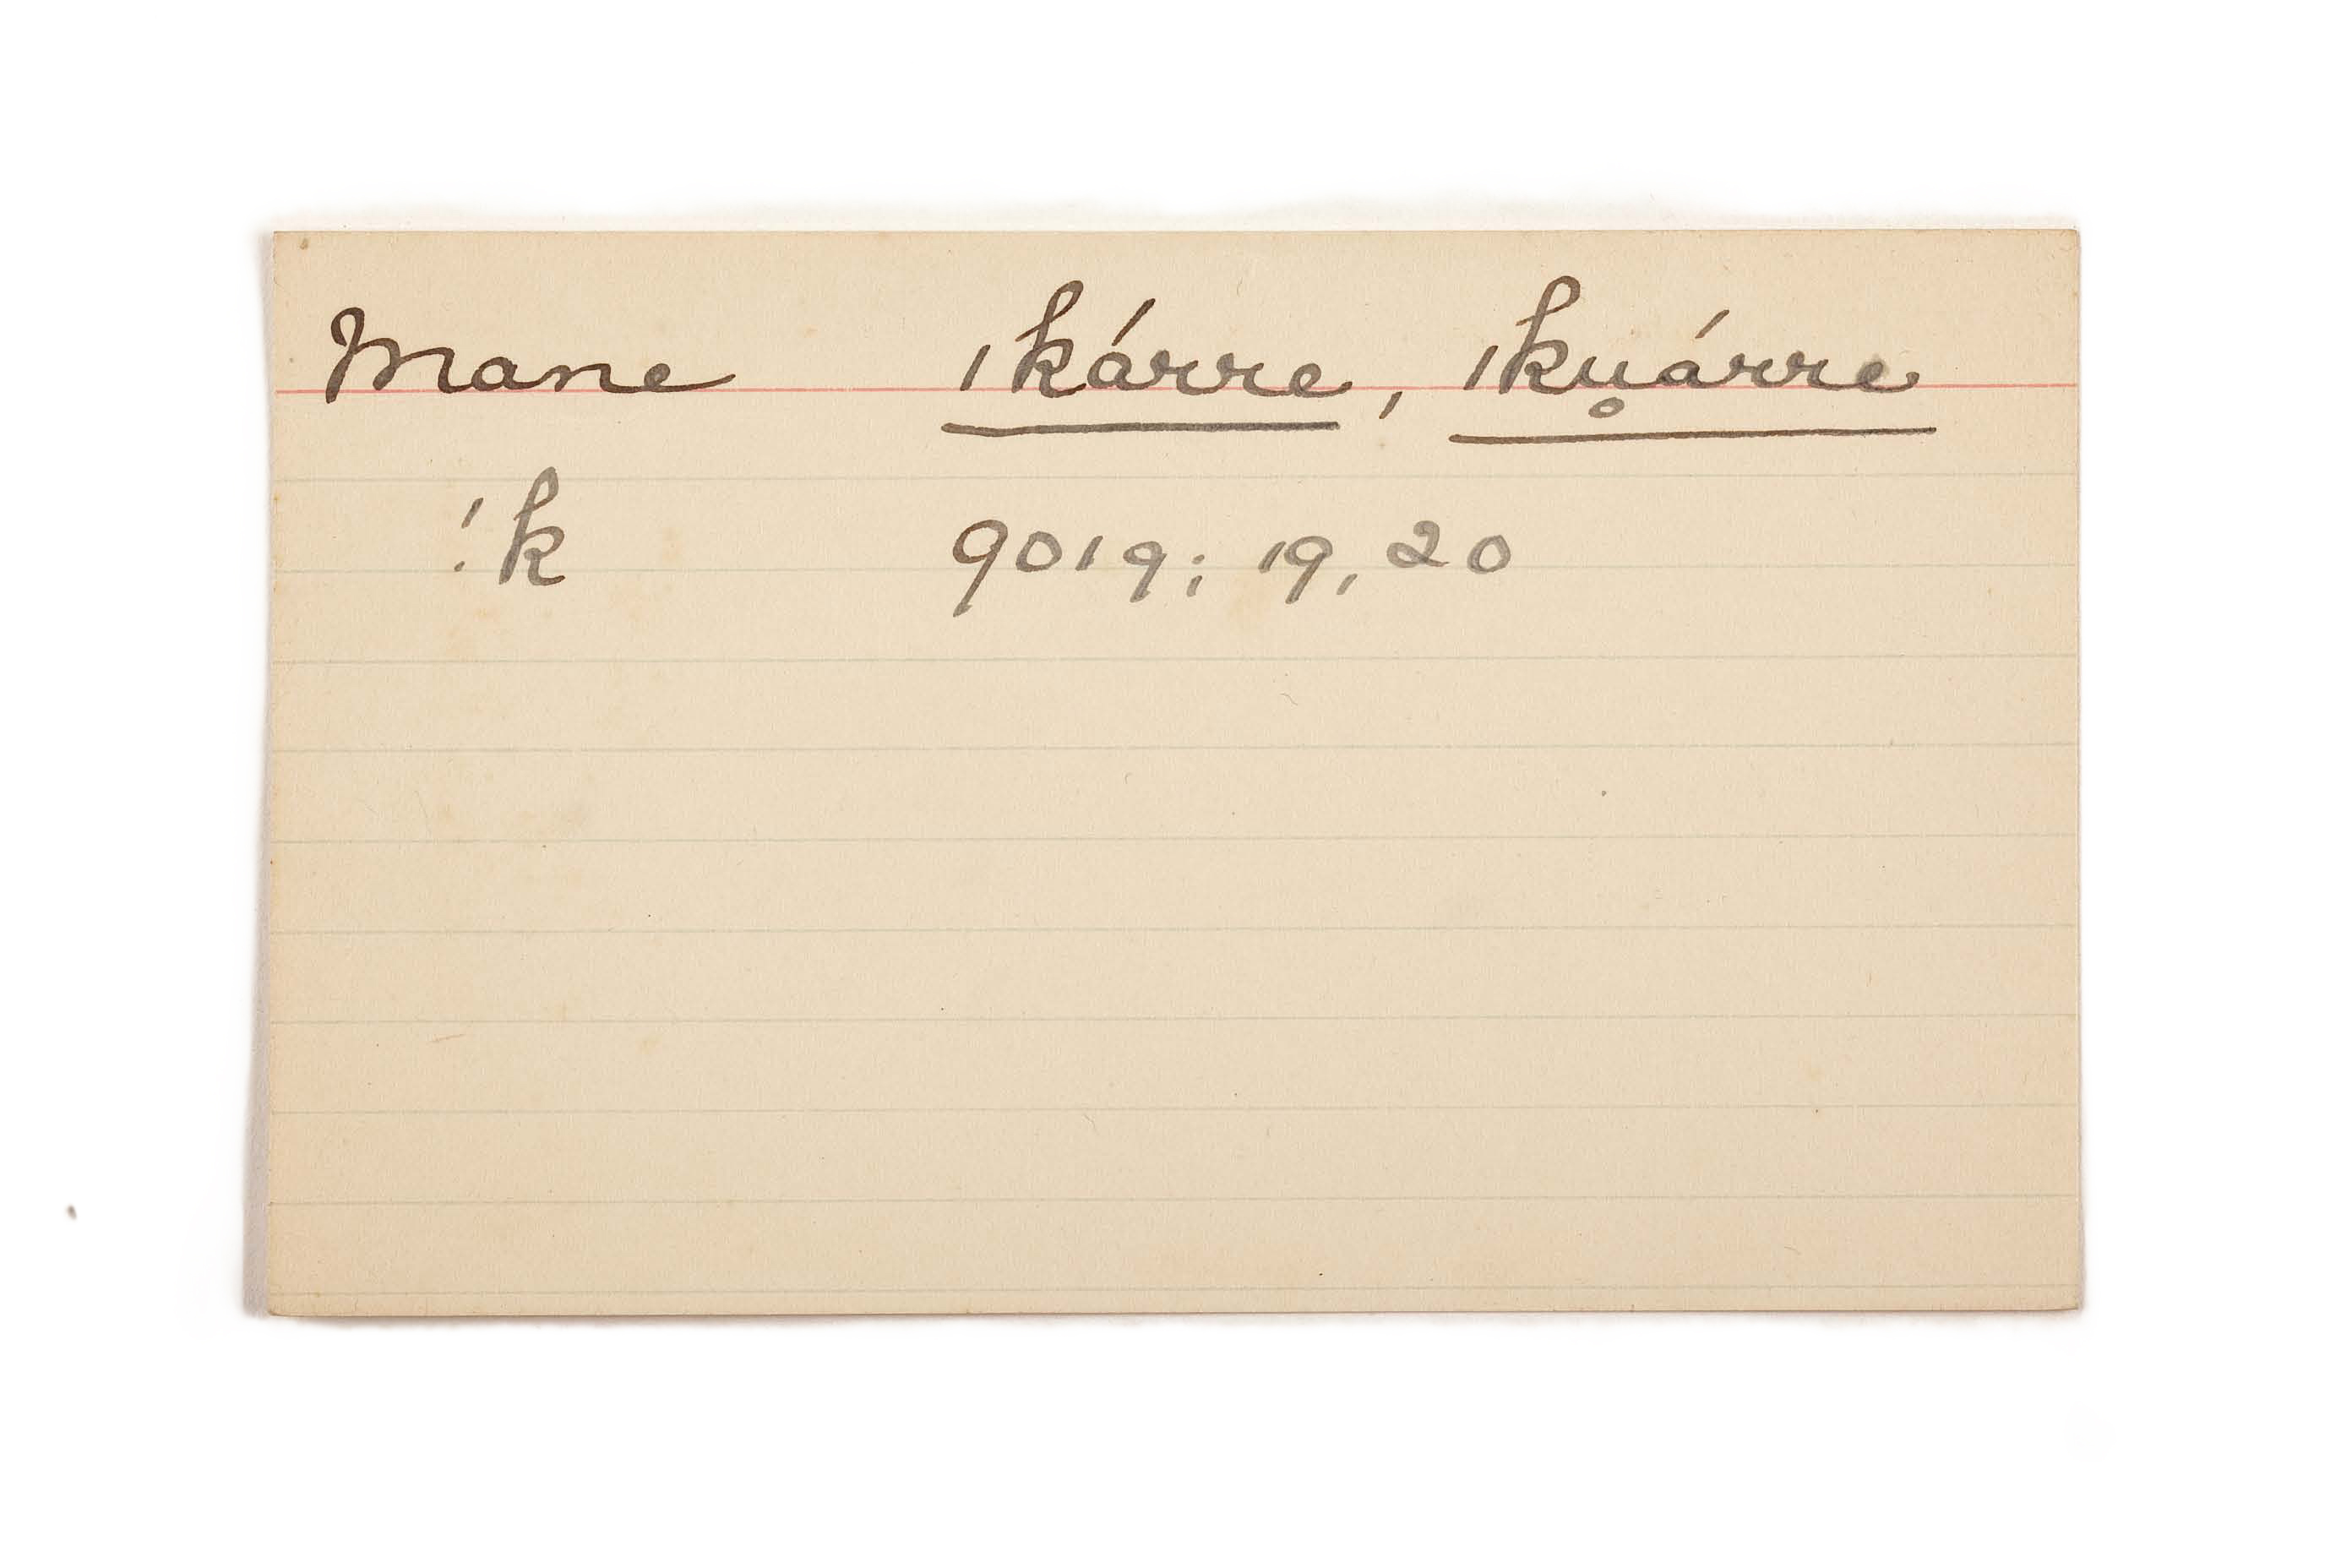 Mane ǀkárre, ǀku̥árre
!k 9019; 19, 20